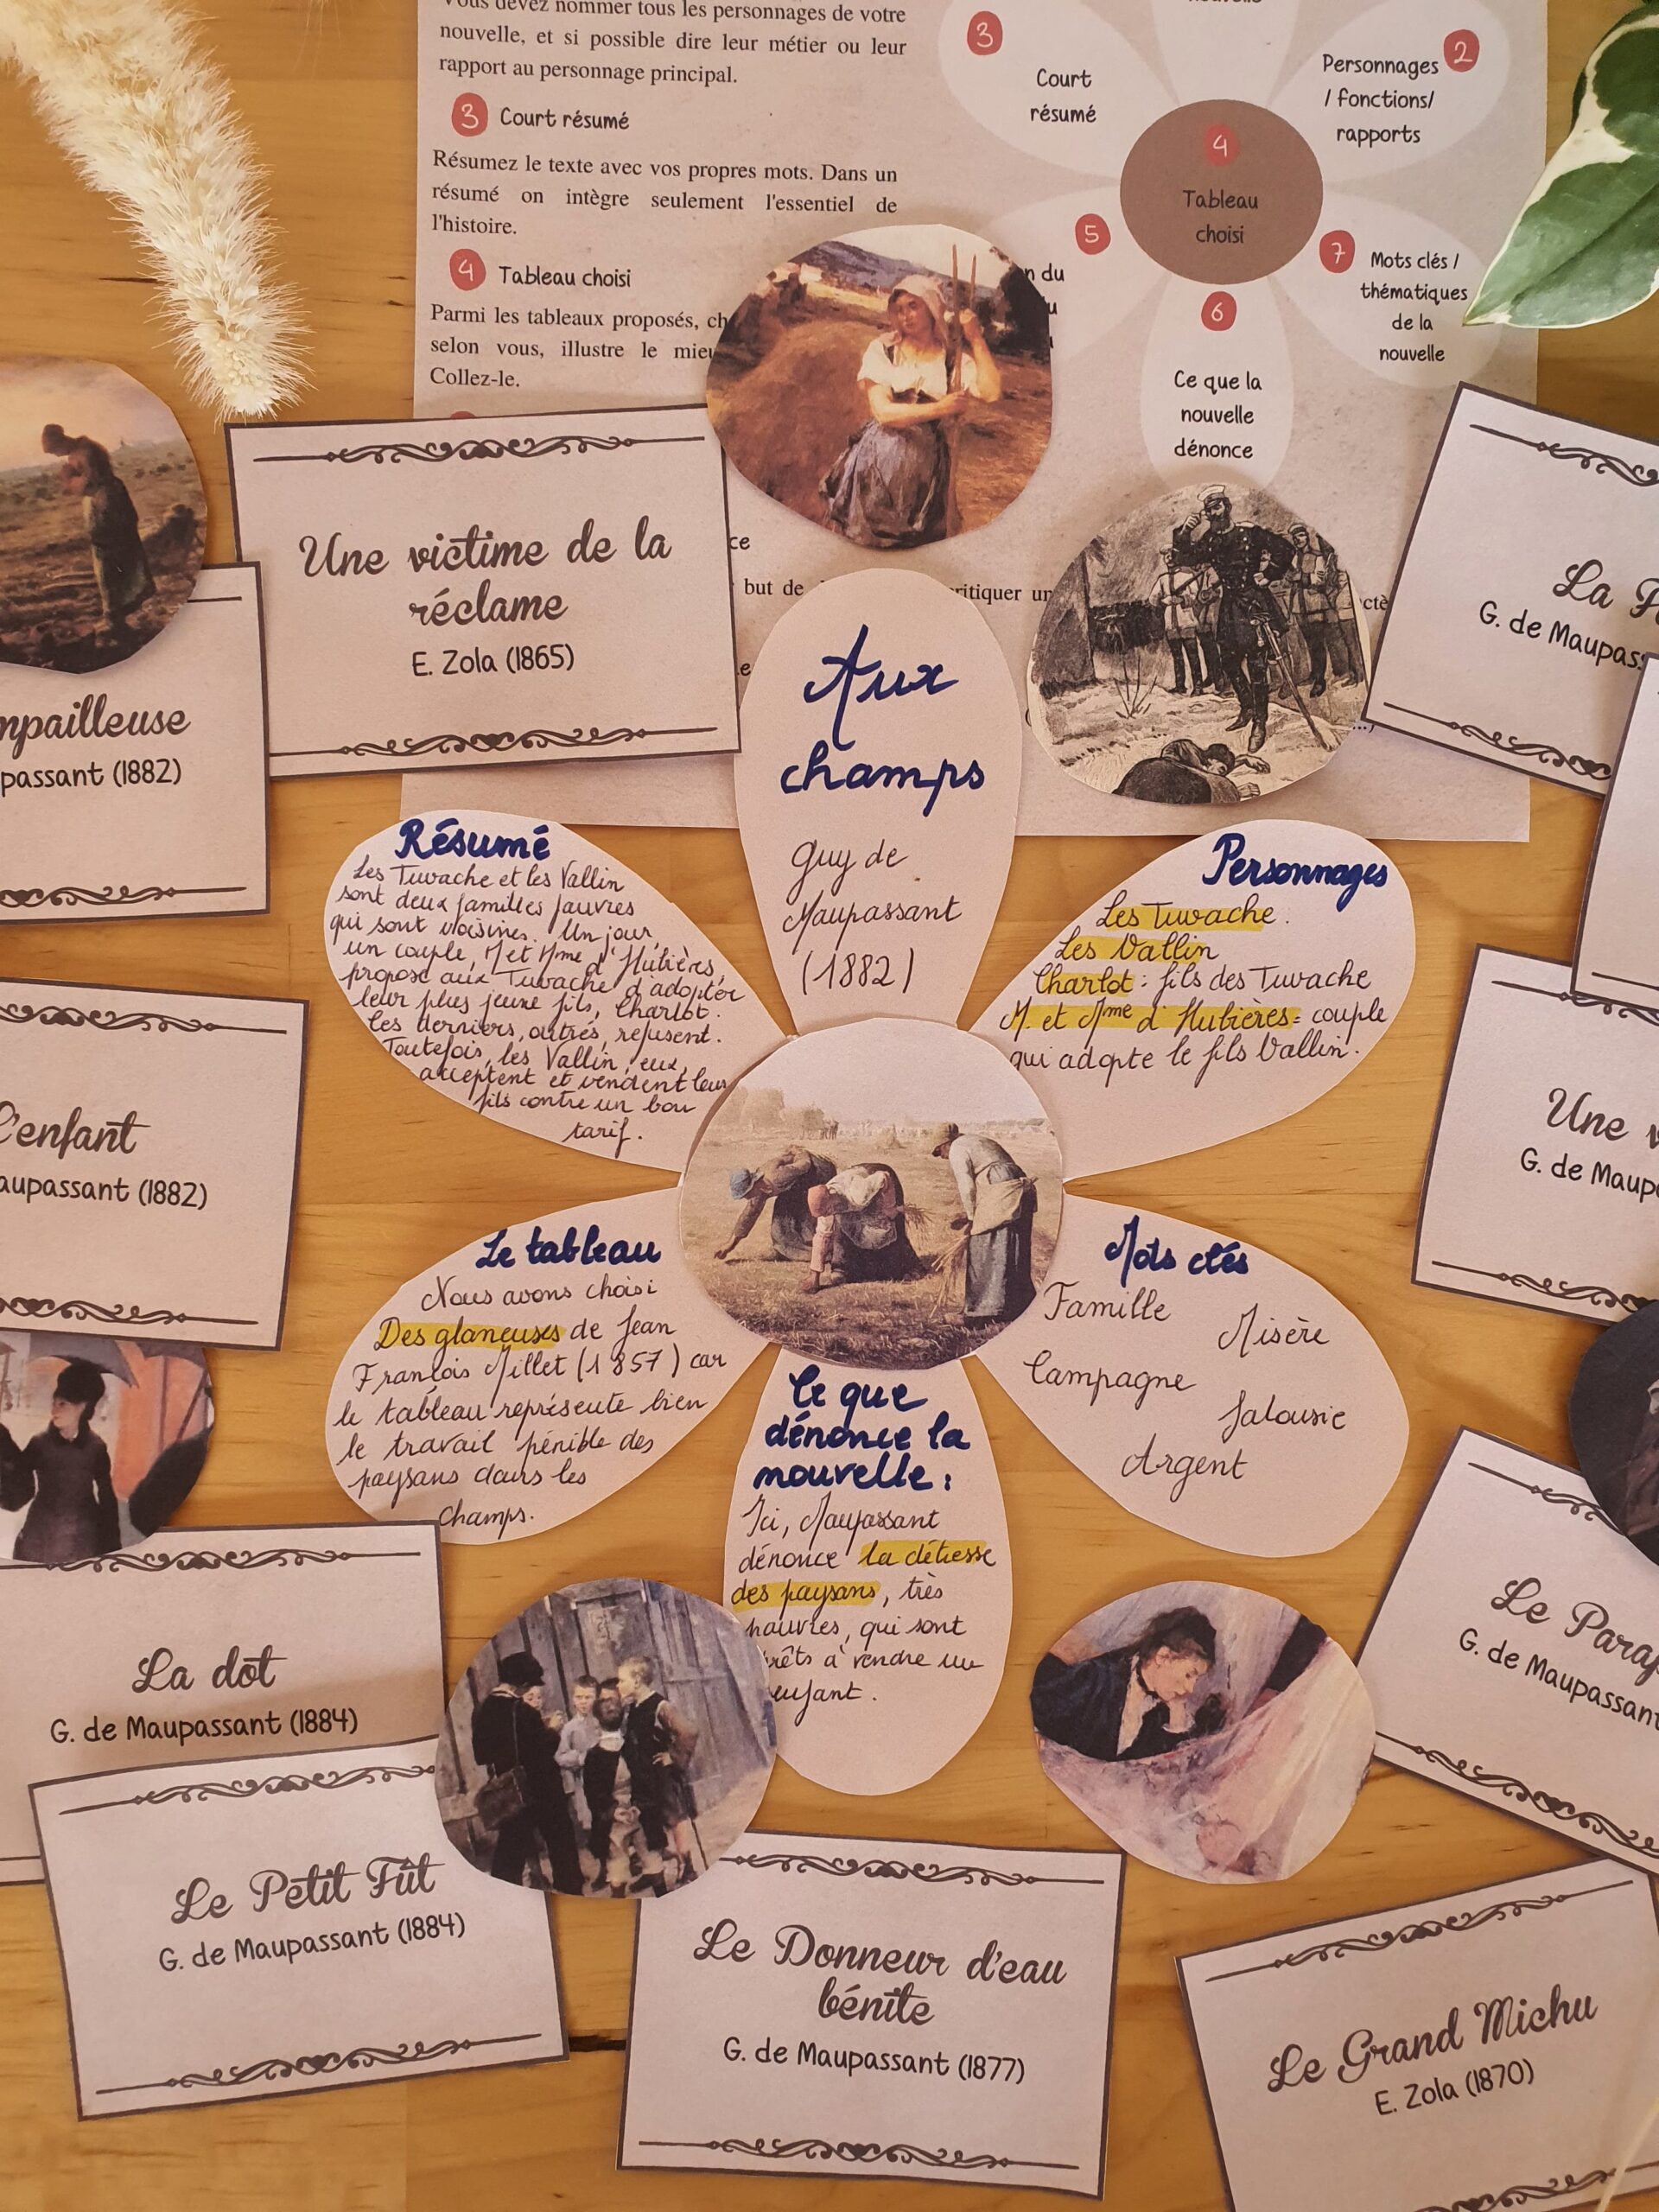 Vous devez nommer tous les personnages de votre
nouvelle, et si possible dire leur métier ou leur
rapport au personnage principal.
3 Court résumé
Résumez le texte avec vos propres mots. Dans un
résumé on intègre seulement l'essentiel de
l'histoire.
4 Tableau choisi
Parmi les tableaux proposés, ch
selon vous, illustre le mieu
Collez-le.
3
Court
résumé
2
Personnages
/ fonctions/
rapports
4
Tableau
choisi
5
n du
7
Mots clés /
thématiques
de la
nouvelle
6
Ce que la
nouvelle
dénonce
ce
but de
critiquer un
Une victime de la
réclame
E. Zola (1865)
La P
G. de Maupas
mpailleuse
passant (1882)
Aux
champs
Guy de
Maupassant
(1882)
Résumé
Les Tuvache et les Vallin
sont deux familles pauvres
qui sont voisines. Un jour,
un couple, M et Mme d'Hubières,
propose aux Tuvache d'adopter
leur plus jeune fils, Charlot.
Les derniers, outrés, refusent.
Toutefois, les Vallin, eux,
acceptent et vendent leur
fils contre un bon
tarif.
Personnages
Les Tuvache.
Les Vallin
Charlot : fils des Tuvache
M. et Mme d'Hubières : couple
qui adopte le fils Vallin.
L'enfant
aupassant (1882)
Une v
G. de Maup
Le tableau
Nous avons choisi
Des glaneuses de Jean
François Millet (1857) car
le tableau représente bien
le travail pénible des
paysans dans les
champs.
Mots clés
Famille
Misère
Campagne
Jalousie
Argent
Ce que
dénonce la
nouvelle :
Ici, Maupassant
dénonce la détresse
des paysans, très
pauvres, qui sont
prêts à vendre un
enfant.
La dot
G. de Maupassant (1884)
Le Parap
G. de Maupassant
Le Petit Fût
G. de Maupassant (1884)
Le Donneur d'eau
bénite
G. de Maupassant (1877)
Le Grand Michu
E. Zola (1870)